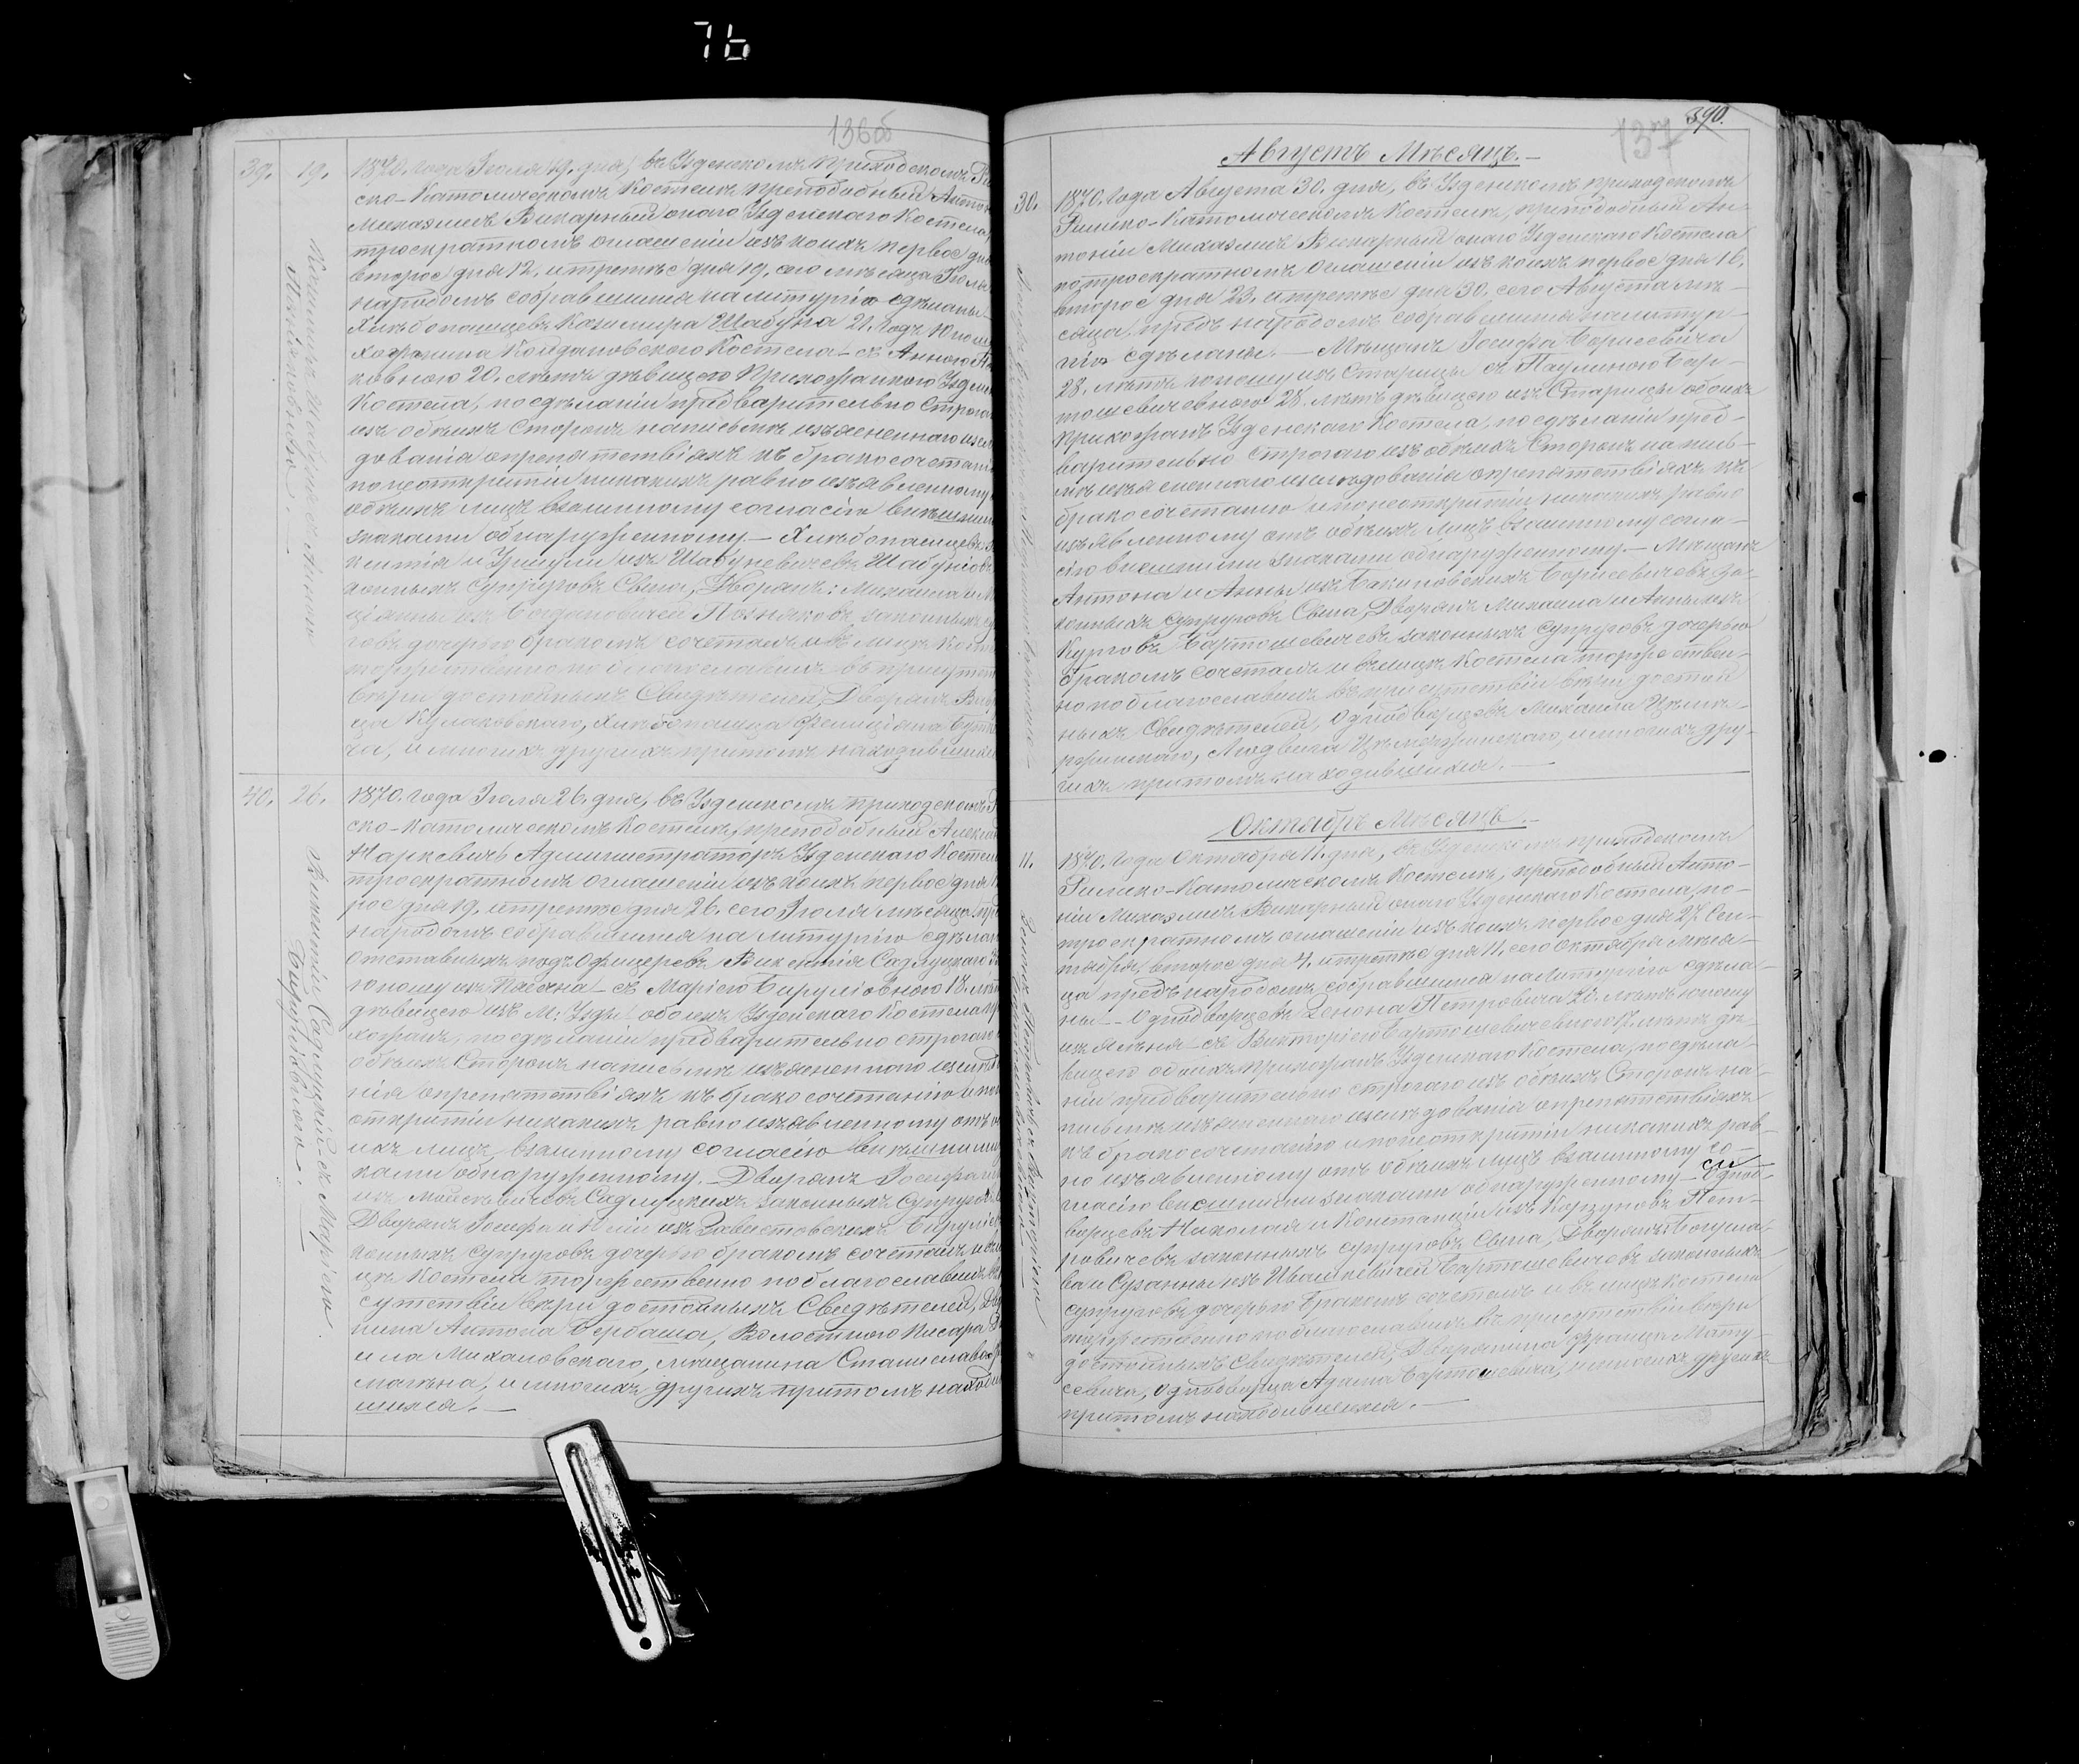 76
136об
39. 19.
1870. года Іюля 19. дня, въ Узденскомъ приходскомъ Ри
ско-Католическомъ Костелѣ преподобный Антон
Михазлевъ Викарный онаго Узденскаго Костела,
троекратномъ оглашеніи изъ коихъ первое дня
второе дня 12. и третье дня 19. сего мѣсяца Іюля
народомъ собравшимся на литургію сдѣланы
Хлѣбопашцевъ Казимира Шабуня 21. годъ юнош
хожанина Койдановскаго Костела — съ Анною
ковною 20. лѣтъ дѣвицею прихожанкою Узден
Костела, по сдѣланіи предварительно строгаго
изъ обѣихъ сторонъ на письмѣ изъясненнаго изслѣ
дованія о препятствіяхъ къ бракосочетанію
по неоткрытіи никакихъ равно изъявленному
обѣихъ лицъ взаимному согласію внѣшними
знаками обнаруженному. — Хлѣбопашцевъ
кентія и Уршули изъ Шабуневичевъ Шабуніовъ
конныхъ супруговъ Сына, Дворянъ: Михаила и
ціанны изъ Богдановичей Позняковъ законныхъ су
говъ дочерью бракомъ сочеталъ и въ лицѣ Косте
торжественно поблагославилъ въ присутств
вѣри достойныхъ Свидѣтелей, Дворянъ
ца Кулаковскаго, Хлѣбопашца Фелиціана
ча, и многихъ другихъ притомъ находившихся
Казимиръ Шабуня съ Анною
Позняковною.
40. 26.
1870. года Іюля 26. дня, въ Узденскомъ приходскомъ
ско-католическомъ Костелѣ, преподобный Алекса
Маркевичъ Администраторъ Узденскаго Костела
троекратномъ оглашеніи изъ коихъ первое дня
рое дня 19. и третье дня 26. сего Іюля мѣсяца пред
народомъ собравшимся на литургію сдѣланы
отставныхъ подъ Офицеровъ Викентія Садлуцкаго
юношу изъ — съ Маріею Бируліовною 18. лѣтъ
дѣвицею изъ М: Узды обоихъ Узденскаго Костела пр
хожанъ, по сдѣланіи предварительно строгаго
обѣихъ Сторонъ на письмѣ изъясненнаго изслѣдова
нія о препятствіяхъ къ бракосочетанію и по не
открытіи никакихъ равно изъявленному отъ об
ихъ лицъ взаимному согласію внѣшними зна
ками обнаруженному. — Дворянъ Іосифа и
изъ Садлуцкихъ законныхъ Супруговъ
Дворянъ Іосифа и изъ Завистовскихъ Бируліо
конныхъ супруговъ дочерью бракомъ сочеталъ и въ ли
цѣ Костела торжественно поблагославилъ въ при
сутствіи вѣри достойныхъ Свидѣтелей, Дво
нина Антона Вербаша, Волостнаго Писаря
ила Михаловскаго, мещанина Станислава
и многихъ другихъ притомъ находив
шихся. —
Викентій Садлуцкій съ Маріею
Бируліовною.
390.
137
Августъ Мѣсяцъ. —
30.
1870. Года Августа 30. дня, въ Узденскомъ приходскомъ
Римско-Католическомъ Костелѣ, преподобный Ан-
тоній Михазлевъ Викарный онаго Узденскаго Костела
по троекратномъ оглашеніи изъ коихъ первое дня 16.
второе дня 23. и третье дня 30. сего Августа мѣ-
сяца, предъ народомъ собравшимся на литур-
гію сдѣланы. — Мещанъ Іосифа Борисевича
28. лѣтъ юношу изъ Старицы съ Паулиною Бар-
тошевичевною 28. лѣтъ дѣвицею изъ Старицы обоихъ
прихожанъ Узденскаго Костела, по сдѣланіи пред-
варительно строгаго изъ обѣихъ Сторонъ на пись-
мѣ изъясненнаго изслѣдованія о препятствіяхъ къ
бракосочетанію и по неоткрытіи никакихъ равно
изъявленному отъ обѣихъ лицъ взаимному согла-
сію внѣшними знаками обнаруженному. — Мещанъ
Антона и Анны изъ Бакиновскихъ Борисевичевъ за-
конныхъ супруговъ Сына, Дворянъ Михаила и Анны изъ
Курговъ Бартошевичевъ законныхъ супруговъ дочерью
бракомъ сочеталъ и въ лицѣ Костела торжествен-
но поблагославилъ въ присутствіи вѣри достой
ныхъ Свидѣтелей, Однодворцевъ Михаила
Людвига и многихъ дру-
гихъ притомъ находившихся. —
Октябрь Мѣсяцъ. —
11.
1870. Года Октября 11. дня, въ Узденскомъ приходскомъ
Римско-Католическомъ Костелѣ, преподобный Анто-
ній Михазлевъ Викарный онаго Узденскаго Костела, по-
троекратномъ оглашеніи изъ коихъ первое дня 27. Сен-
тября, второе дня 4. и третье дня 11. сего Октября мѣся-
ца предъ народомъ собравшимся на литургію сдѣла-
ны. — Однодворцевъ Зенона Петровича лѣтъ юношу
съ Викторіею Бартошевичевною 17. лѣтъ дѣ-
вицею обоихъ прихожанъ Узденскаго Костела, по сдѣла-
ніи предварительно строгаго изъ обѣихъ Сторонъ на-
письмѣ изъясненнаго изслѣдованія о препятствіяхъ
къ бракосочетанію и по неоткрытіи никакихъ рав-
но изъявленному отъ обѣихъ лицъ взаимному со-
гласію внѣшними знаками обнаруженному. — Однод-
ворцевъ Николая и Констанціи изъ Корзуновъ Пет-
ровичевъ законныхъ супруговъ Сына, Дворянъ: Богусла-
ва и Сузанны изъ Ивашкевичей Бартошевичевъ законныхъ
супруговъ дочерью бракомъ сочеталъ и въ лицѣ Костела
торжественно поблагославилъ въ присутствіи вѣри
достойныхъ Свидѣтелей, Дворянина Франца Мату-
севича, Однодворца Адама Бартошевича, и многихъ другихъ
притомъ находившихся. —